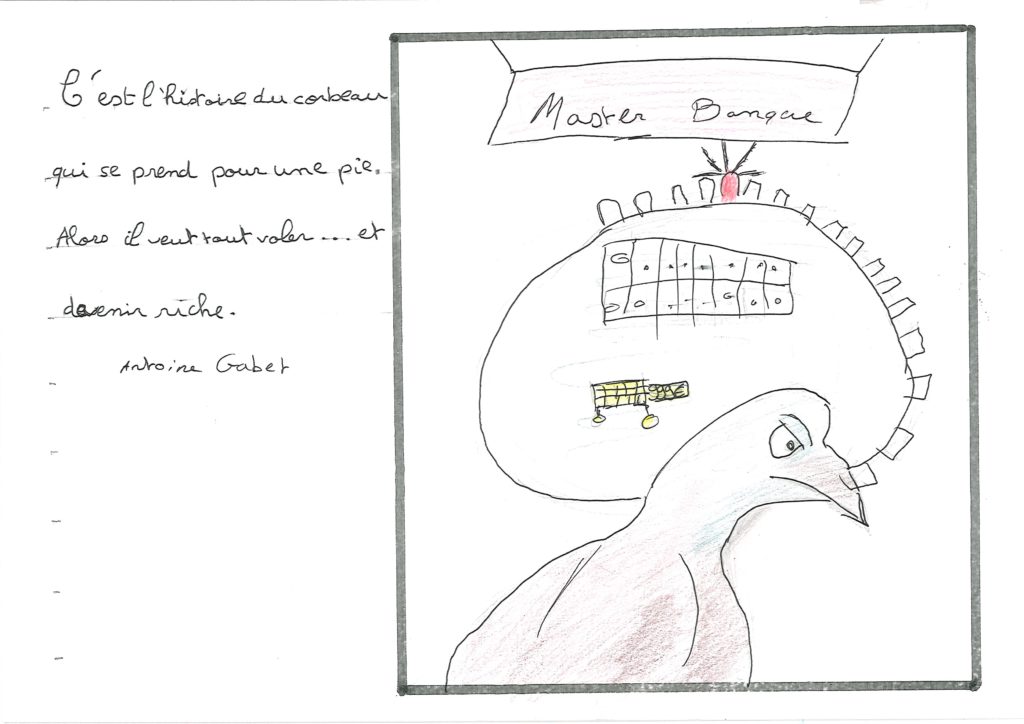 C'est l'histoire du corbeau
qui se prend pour une pie.
Alors il veut tout voler... et
devenir riche.
Antoine Gabet
Master Banque
999€